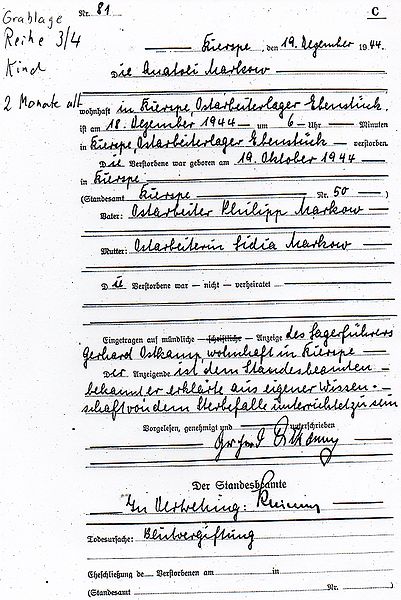 Grablage
Reihe 3/4
Kind
2 Monate alt
Nr. 81
C
Kierspe, den 19. Dezember 1944.
Die Anatoli Markow
wohnhaft in Kierspe, Ostarbeiterlager Ebenstück.
ist am 18. Dezember 1944 — um 6 — Uhr — Minuten
in Kierspe, Ostarbeiterlager Ebenstück — verstorben.
Die Verstorbene war geboren am 19. Oktober 1944
in Kierspe.
(Standesamt Kierspe Nr. 50 —)
Vater: Ostarbeiter Philipp Markow
Mutter: Ostarbeiterin Lidia Markow
Die Verstorbene war — nicht — verheiratet
Eingetragen auf mündliche — schriftliche — Anzeige des Lagerführers
Gerhard Ostkamp, wohnhaft in Kierspe
Der Anzeigende ist dem Standesbeamten
bekannt er erklärte aus eigener Wissen-
schaft von dem Sterbefalle unterrichtet zu sein
Vorgelesen, genehmigt und unterschrieben
Gerhard
Der Standesbeamte
In Vertretung:
Todesursache: Blutvergiftung
Eheschließung de Verstorbenen am in
(Standesamt Nr. )